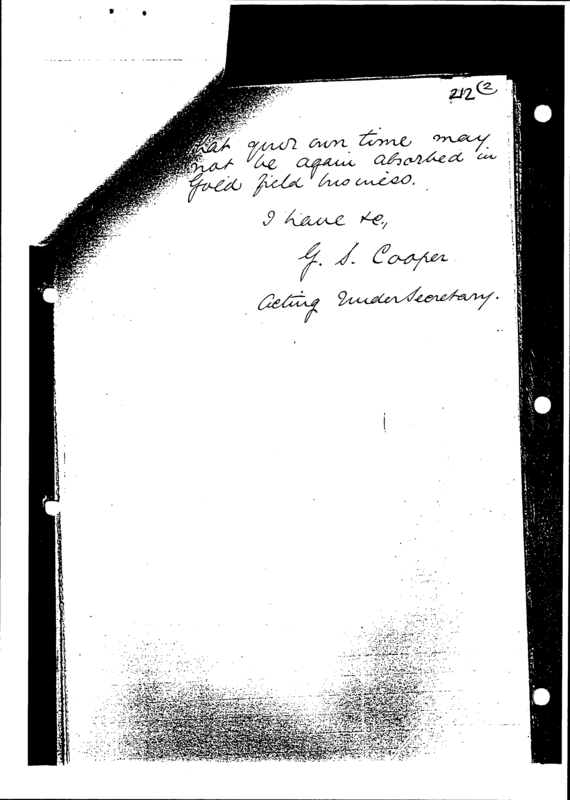 212 (2
that your own time may
not be again absorbed in
Gold field business.
I have &c,
G. S. Cooper
Acting UnderSecretary.